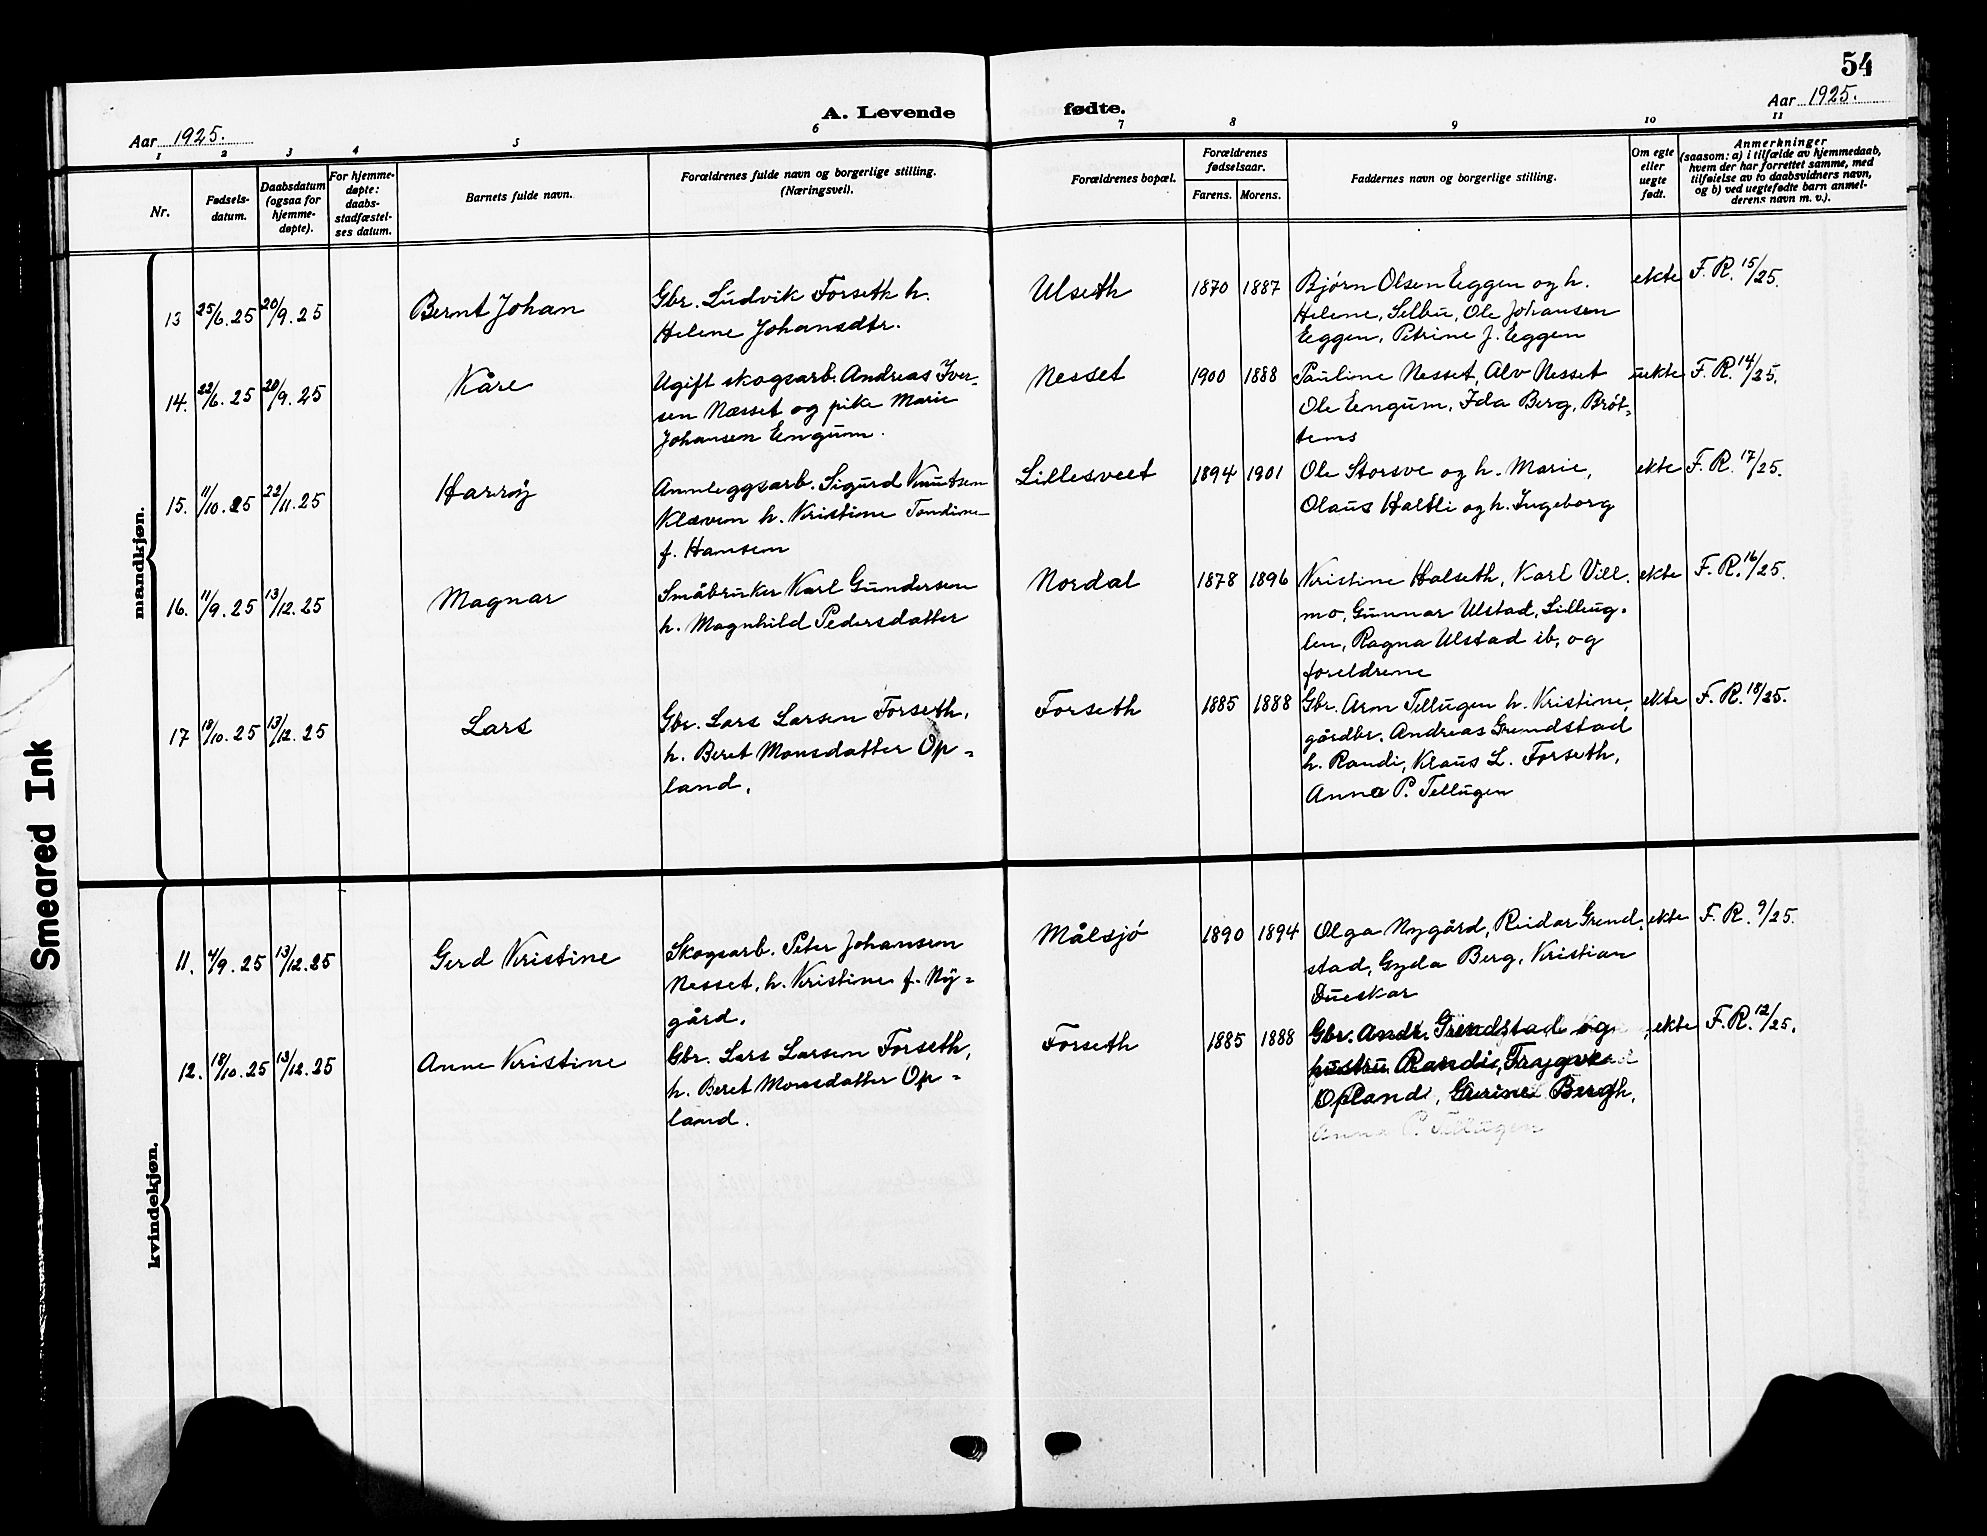 54
Aar 1925.
A. Levende
fødte.
Aar 1925.
1 2 3 4 5 6 7 8 9 10 11
Nr.
Fødsels-
datum.
Daabsdatum
(ogsaa for
hjemme-
døpte).
For hjemme-
døpte:
daabs-
stadfæstel-
ses datum.
Barnets fulde navn.
Forældrenes fulde navn og borgerlige stilling.
(Næringsvei).
Forældrenes bopæl.
Forældrenes
fødselsaar.
Farens. Morens.
Faddernes navn og borgerlige stilling.
Om egte
eller
uegte
født.
Anmerkninger
(saasom: a) i tilfælde av hjemmedaab,
hvem der har forrettet samme, med
tilføielse av to daabsvidners navn,
og b) ved uegtefødte barn anmel-
derens navn m. v.).
mandkjøn.
13 25/6.25 20/9.25
Bernt Johan
Gbr. Ludvik Forseth h.
Helene Johansdtr.
Ulseth
1870 1887
Bjørn Olsen Eggen og h.
Helene, Selbu, Ole Johansen
Eggen, Petrine J. Eggen
ekte
F. R. 15/25.
14. 22/6.25 20/9.25
Kåre
Ugift skogsarb. Andreas Iver-
sen Næsset og pike Marie
Johansen Engum.
Nesset
1900 1888
Pauline Nesset, Alv Nesset
Ole Engum, Ida Berg, Brøt-
tems
uekte
F. R. 14/25.
15. 11/10.25 22/11.25
Harry
Annleggsarb. Sigurd Knutsen
Klæven h. Kristine Tondine
f. Hansen
Lillesveet
1894 1901
Ole Storsve og h. Marie,
Olaus Haltli og h. Ingeborg
ekte
F. R. 17/25.
16. 11/9.25 13/12.25
Magnar
Småbruker Karl Gundersen
h. Magnhild Pedersdatter
Nordal
1878 1896
Kristine Halseth, Karl Vill-
mo, Gunnar Ulstad, Lilleug-
len, Ragna Ulstad ib, og
foreldrene
ekte
F. R. 16/25.
17 18/10.25 13/12.25
Lars
Gbr. Lars Larsen Forseth,
h. Beret Monsdatter Op-
land.
Forseth
1885 1888
Gbr. Arn Tellugen h. Kristine,
gårdbr. Andreas Grendstad
h. Randi, Klaus L. Forseth,
Anna P. Tellugen
ekte
F. R. 18/25.
kvindekjøn.
11. 4/9.25 13/12.25
Gerd Kristine
Skogsarb. Peter Johansen
Nesset, h. Kristine f. Ny-
gård.
Målsjö
1890 1894
Olga Nygård, Reidar Grend-
stad, Gyda Berg, Kristian
Dueskar
ekte
F. R. 9/25.
12. 18/10.25 13/12.25
Anne Kristine
Gbr. Lars Larsen Forseth,
h. Beret Monsdatter Op-
land.
Forseth
1885 1888
Gbr. Andr. Grendstad og
hustru Randi, Trygve
Opland, Bergh,
Anna P. Tellugen
ekte
F. R. 12/25.
Smeared Ink